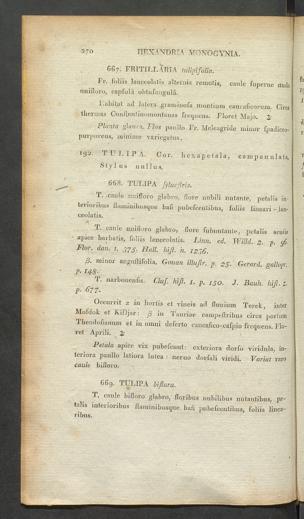 270 HEXANDRIA MONOGYNIA.
667. FRITILLARIA tulipifolia.
Fr. foliis lanceolatis alternis remotis, caule superne nudo
unifloro, capsula obtusangula.
Habitat ad latera graminosa montium caucasicorum. Circa
thermas Constantinomontanas frequens. Floret Majo. ♃
Planta glauca. Flos paullo Fr. Meleagride minor spadiceo-
purpureus, minime variegatus.
192. TULIPA. Cor. hexapetala, campanulata,
Stylus nullus.
668. TULIPA sylvestris.
T. caule unifloro glabro, flore nubili nutante, petalis in-
terioribus staminibusque basi pubescentibus, foliis lineari-lan-
ceolatis.
T. caule unifloro glabro, flore subnutante, petalis acutis
apice barbatis, foliis lanceolatis. Linn. ed. Willd. 2. p. 96
Flor. dan. t. 375. Hall. hist. n. 1236.
β. minor angustifolia, Gouan illustr. p. 25. Gerard. gallopr.
p. 148.
T. narbonensis. Clus. hist. 1. p. 150. J. Bauh. hist. 2.
p. 677.
Occurrit α in hortis et vineis ad flumium Terek, inter
Mosdok et Kisljar: β in Tauriae campestribus circa portum
Theodosianum et in omni deserto caucasico-caspio frequens. Flo-
ret Aprili. ♃
Petala apice vix pubescunt: exteriora dorso viridula, in-
teriora paullo latiora lutea: nervo dorsali viridi. Variat raro
caule bifloro.
669. TULIPA biflora.
T. caule bifloro glabro, floribus nubilibus nutantibus, pe-
talis interioribus staminibusque basi pubescentibus, foliis linea-
ribus.